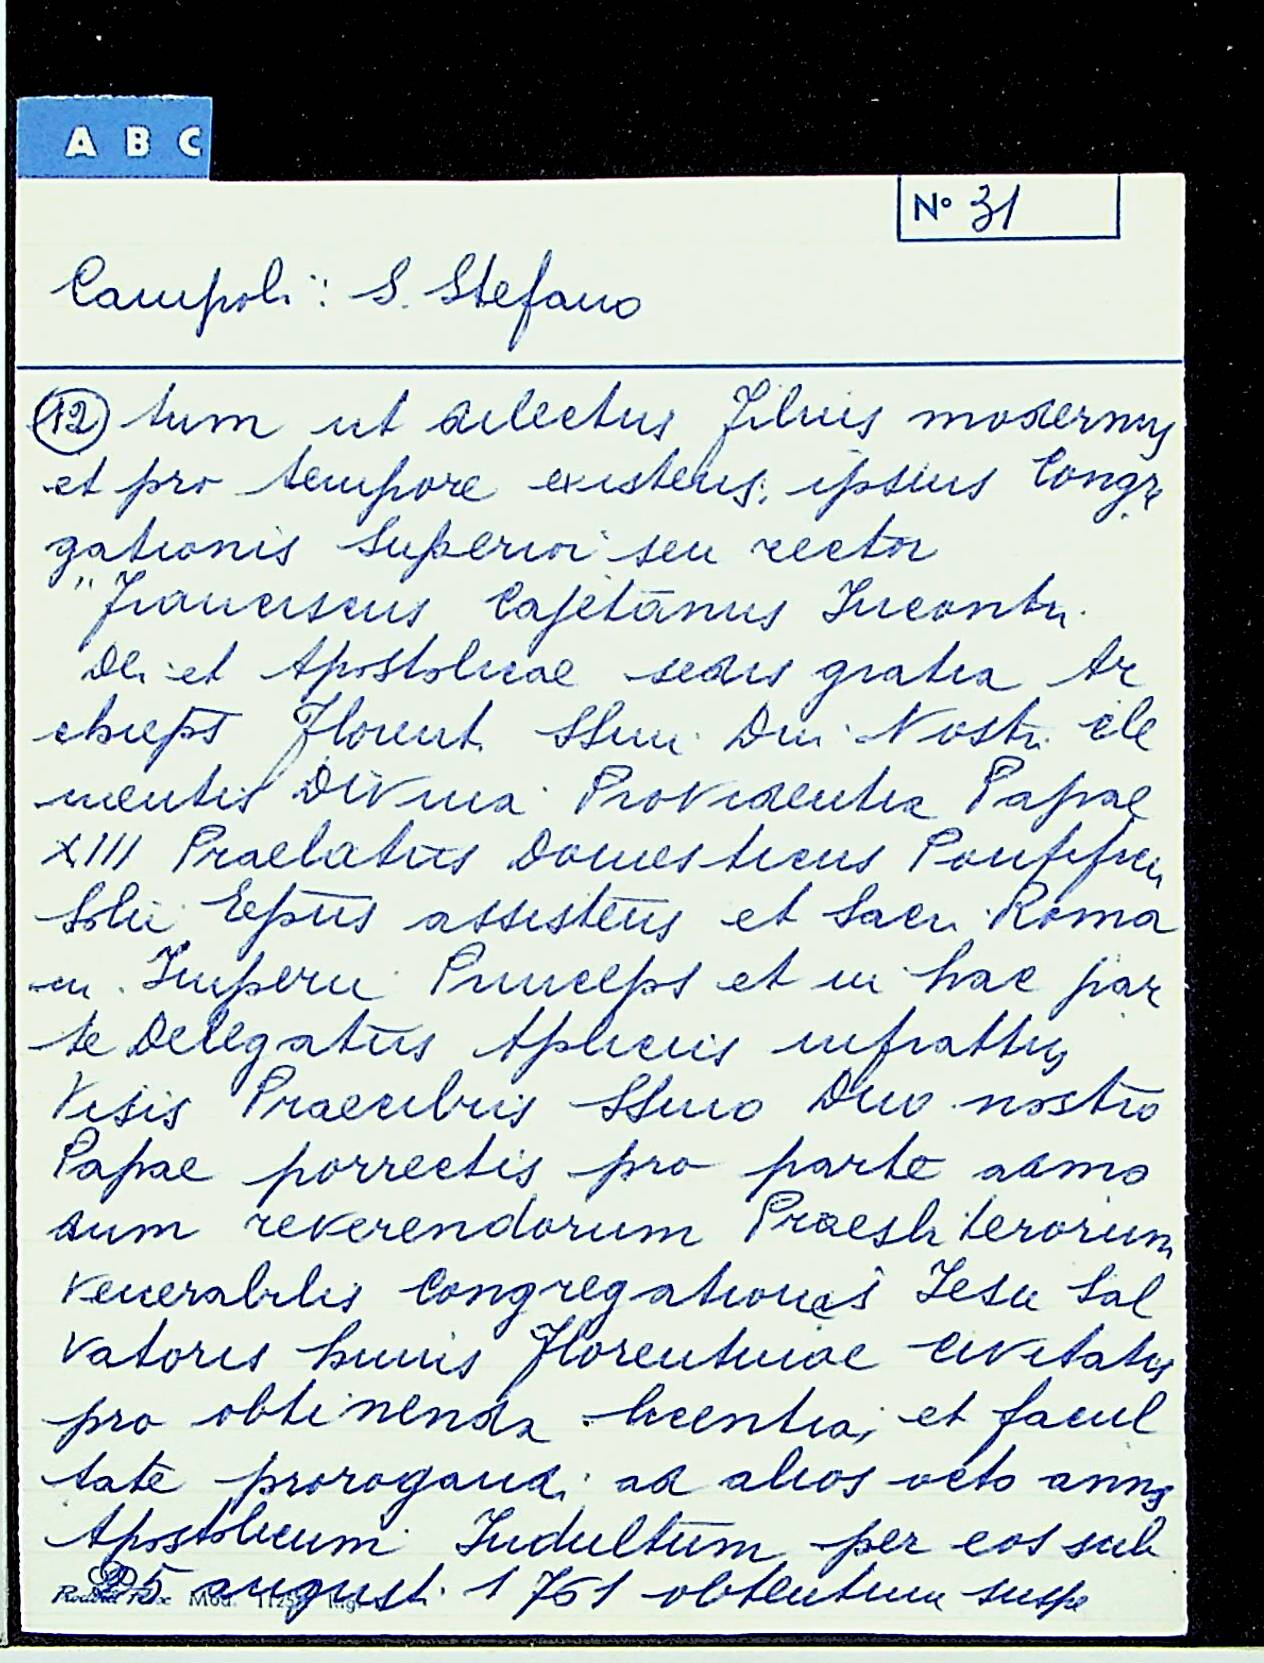 A B C
N° 31
Campoli: S. Stefano
(12) tum ut dilectus Filius modernus
et pro tempore existens, ipsius Congre
gationis Superior seu rector
"Franciscus Cajetānus Incontri
Dei et Apostolicae sedis gratia Ar
chiepṡ Florent. SSmi Dni Nostri cle
mentis Divina Providentia Papae
XIII Praelatus Domesticus Pontificii
Solii Epus assistens et Sacri Roma
ni Imperii Princeps et in hac par
te Delegatus Aplicus infrattus
Visis Praecibus SSmo Dno nostro
Papae porrectis pro parte admo
dum reverendorum Praesbiterorum
venerabilis Congregationis Iesu Sal
vatoris huius Florentinae civitatis
pro obtinenda licentia, et facul
tate prorogandi ad alios octo annos
Apostolicum Indultum per eos sub
25 augusti 1761 obtentum suspe